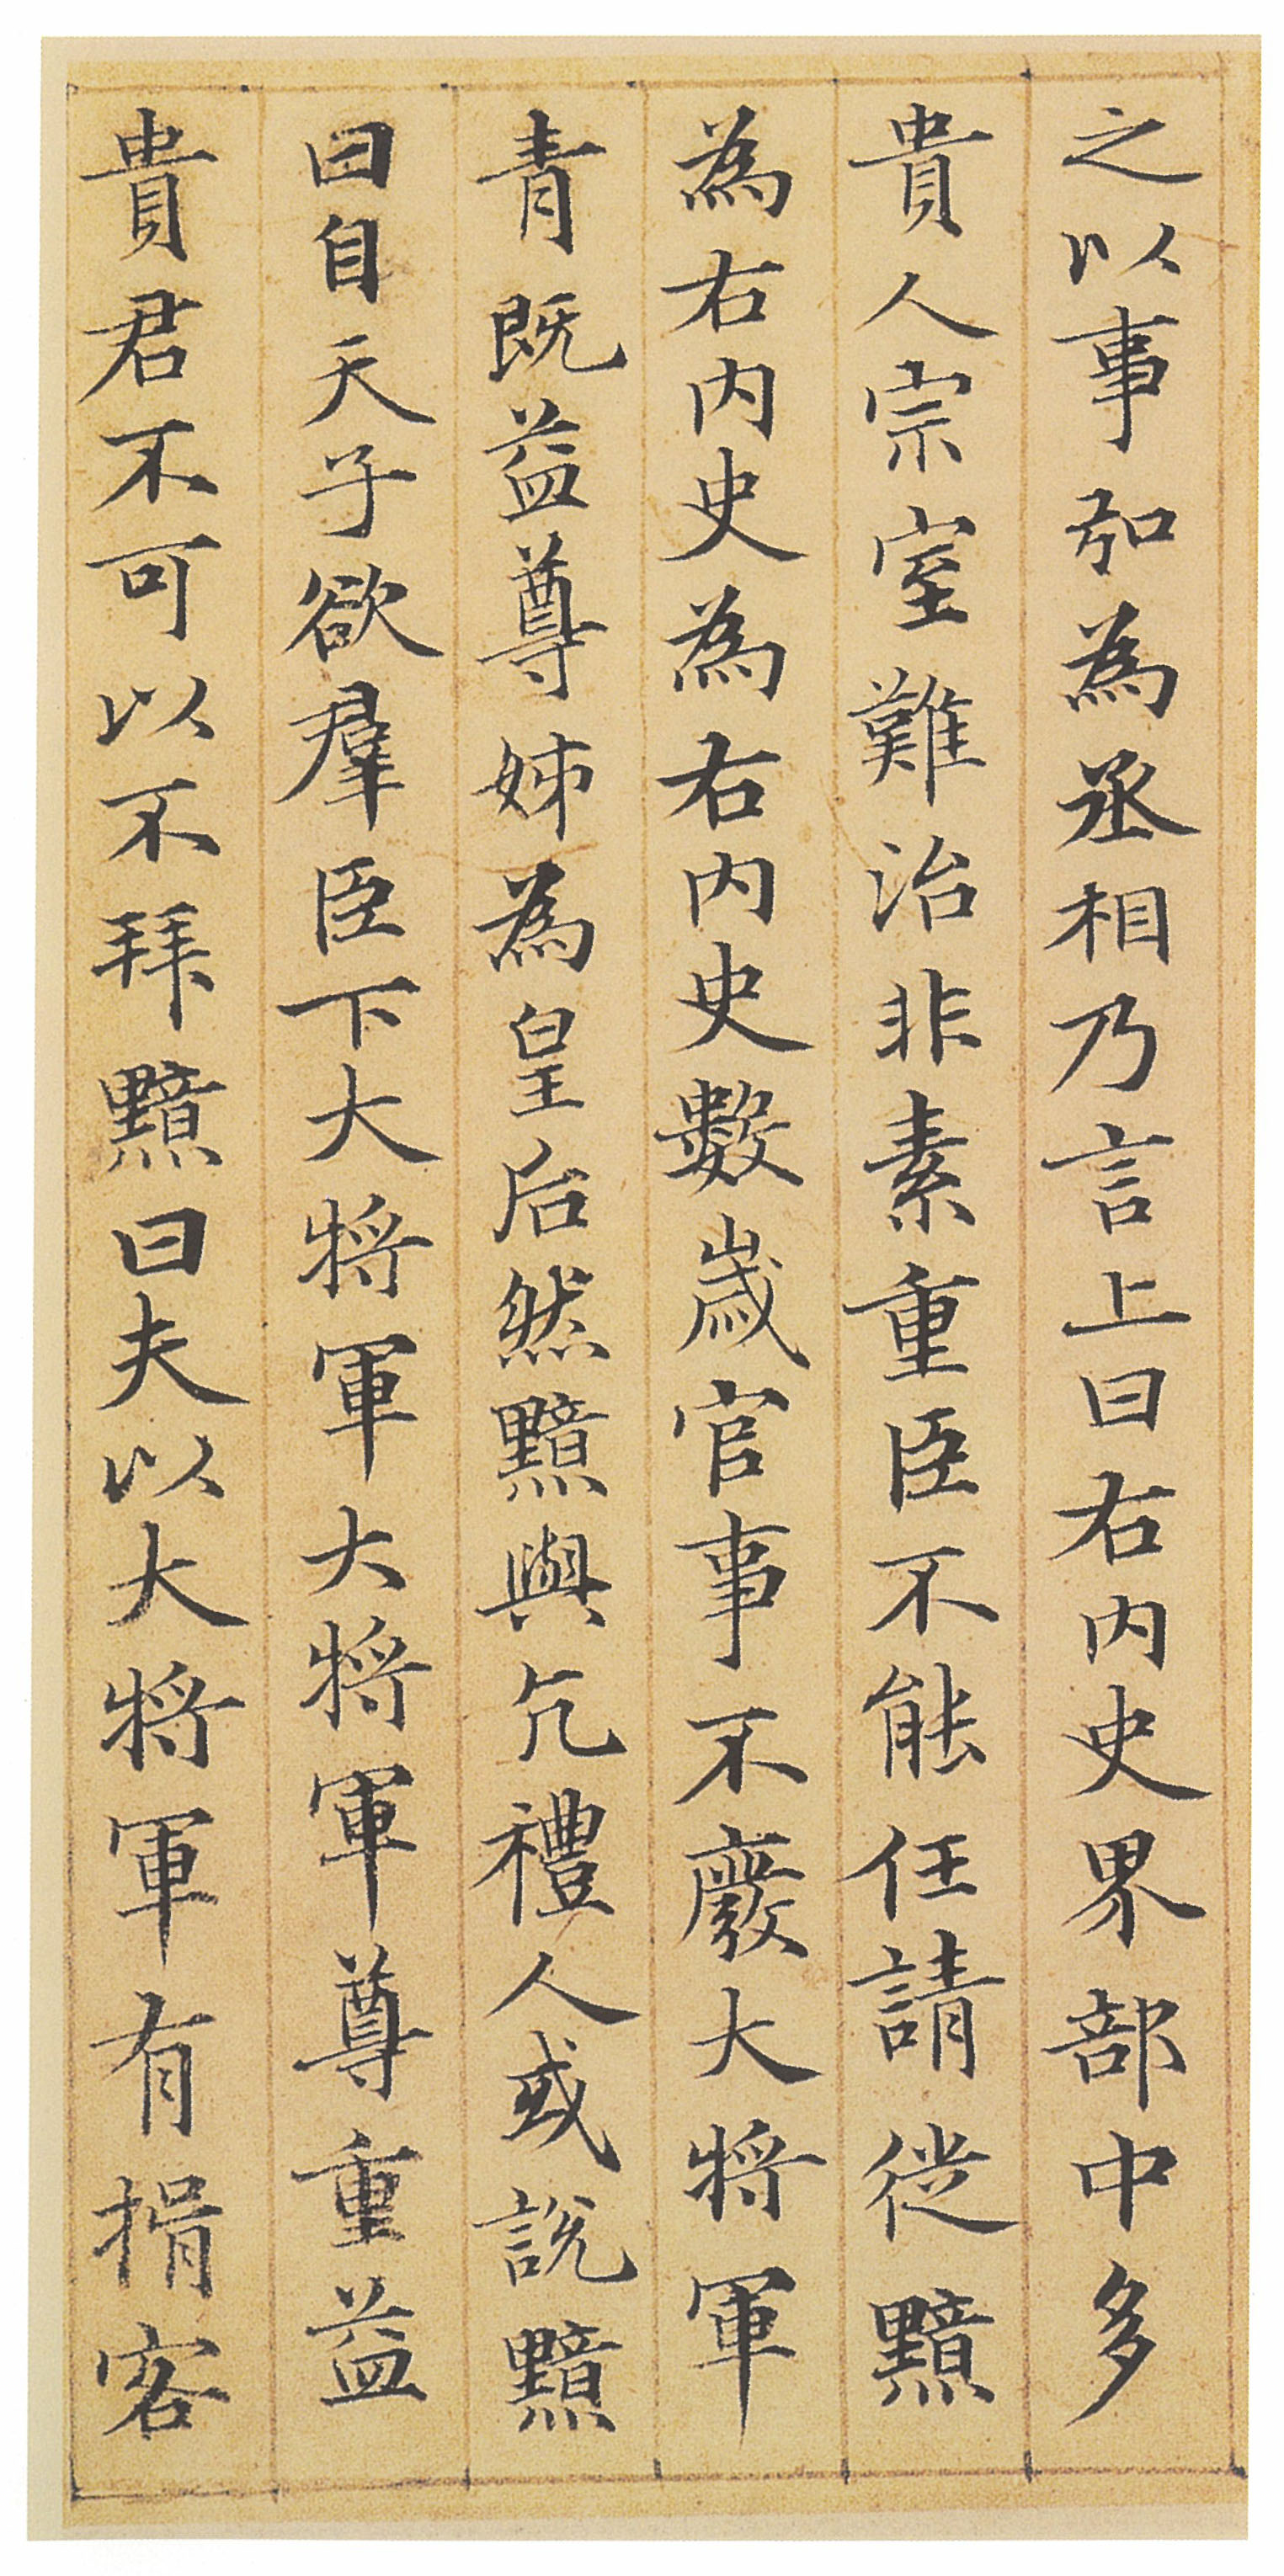 之以事弘為丞相乃言上曰右内史界部中多
貴人宗室難治非素重臣不能任請徙黯
為右内史為右内史數歲官事不廢大將軍
青既益尊姊為皇后然黯與亢禮人或説黯
曰自天子欲羣臣下大將軍大將軍尊重益
貴君不可以不拜黯曰夫以大將軍有揖客